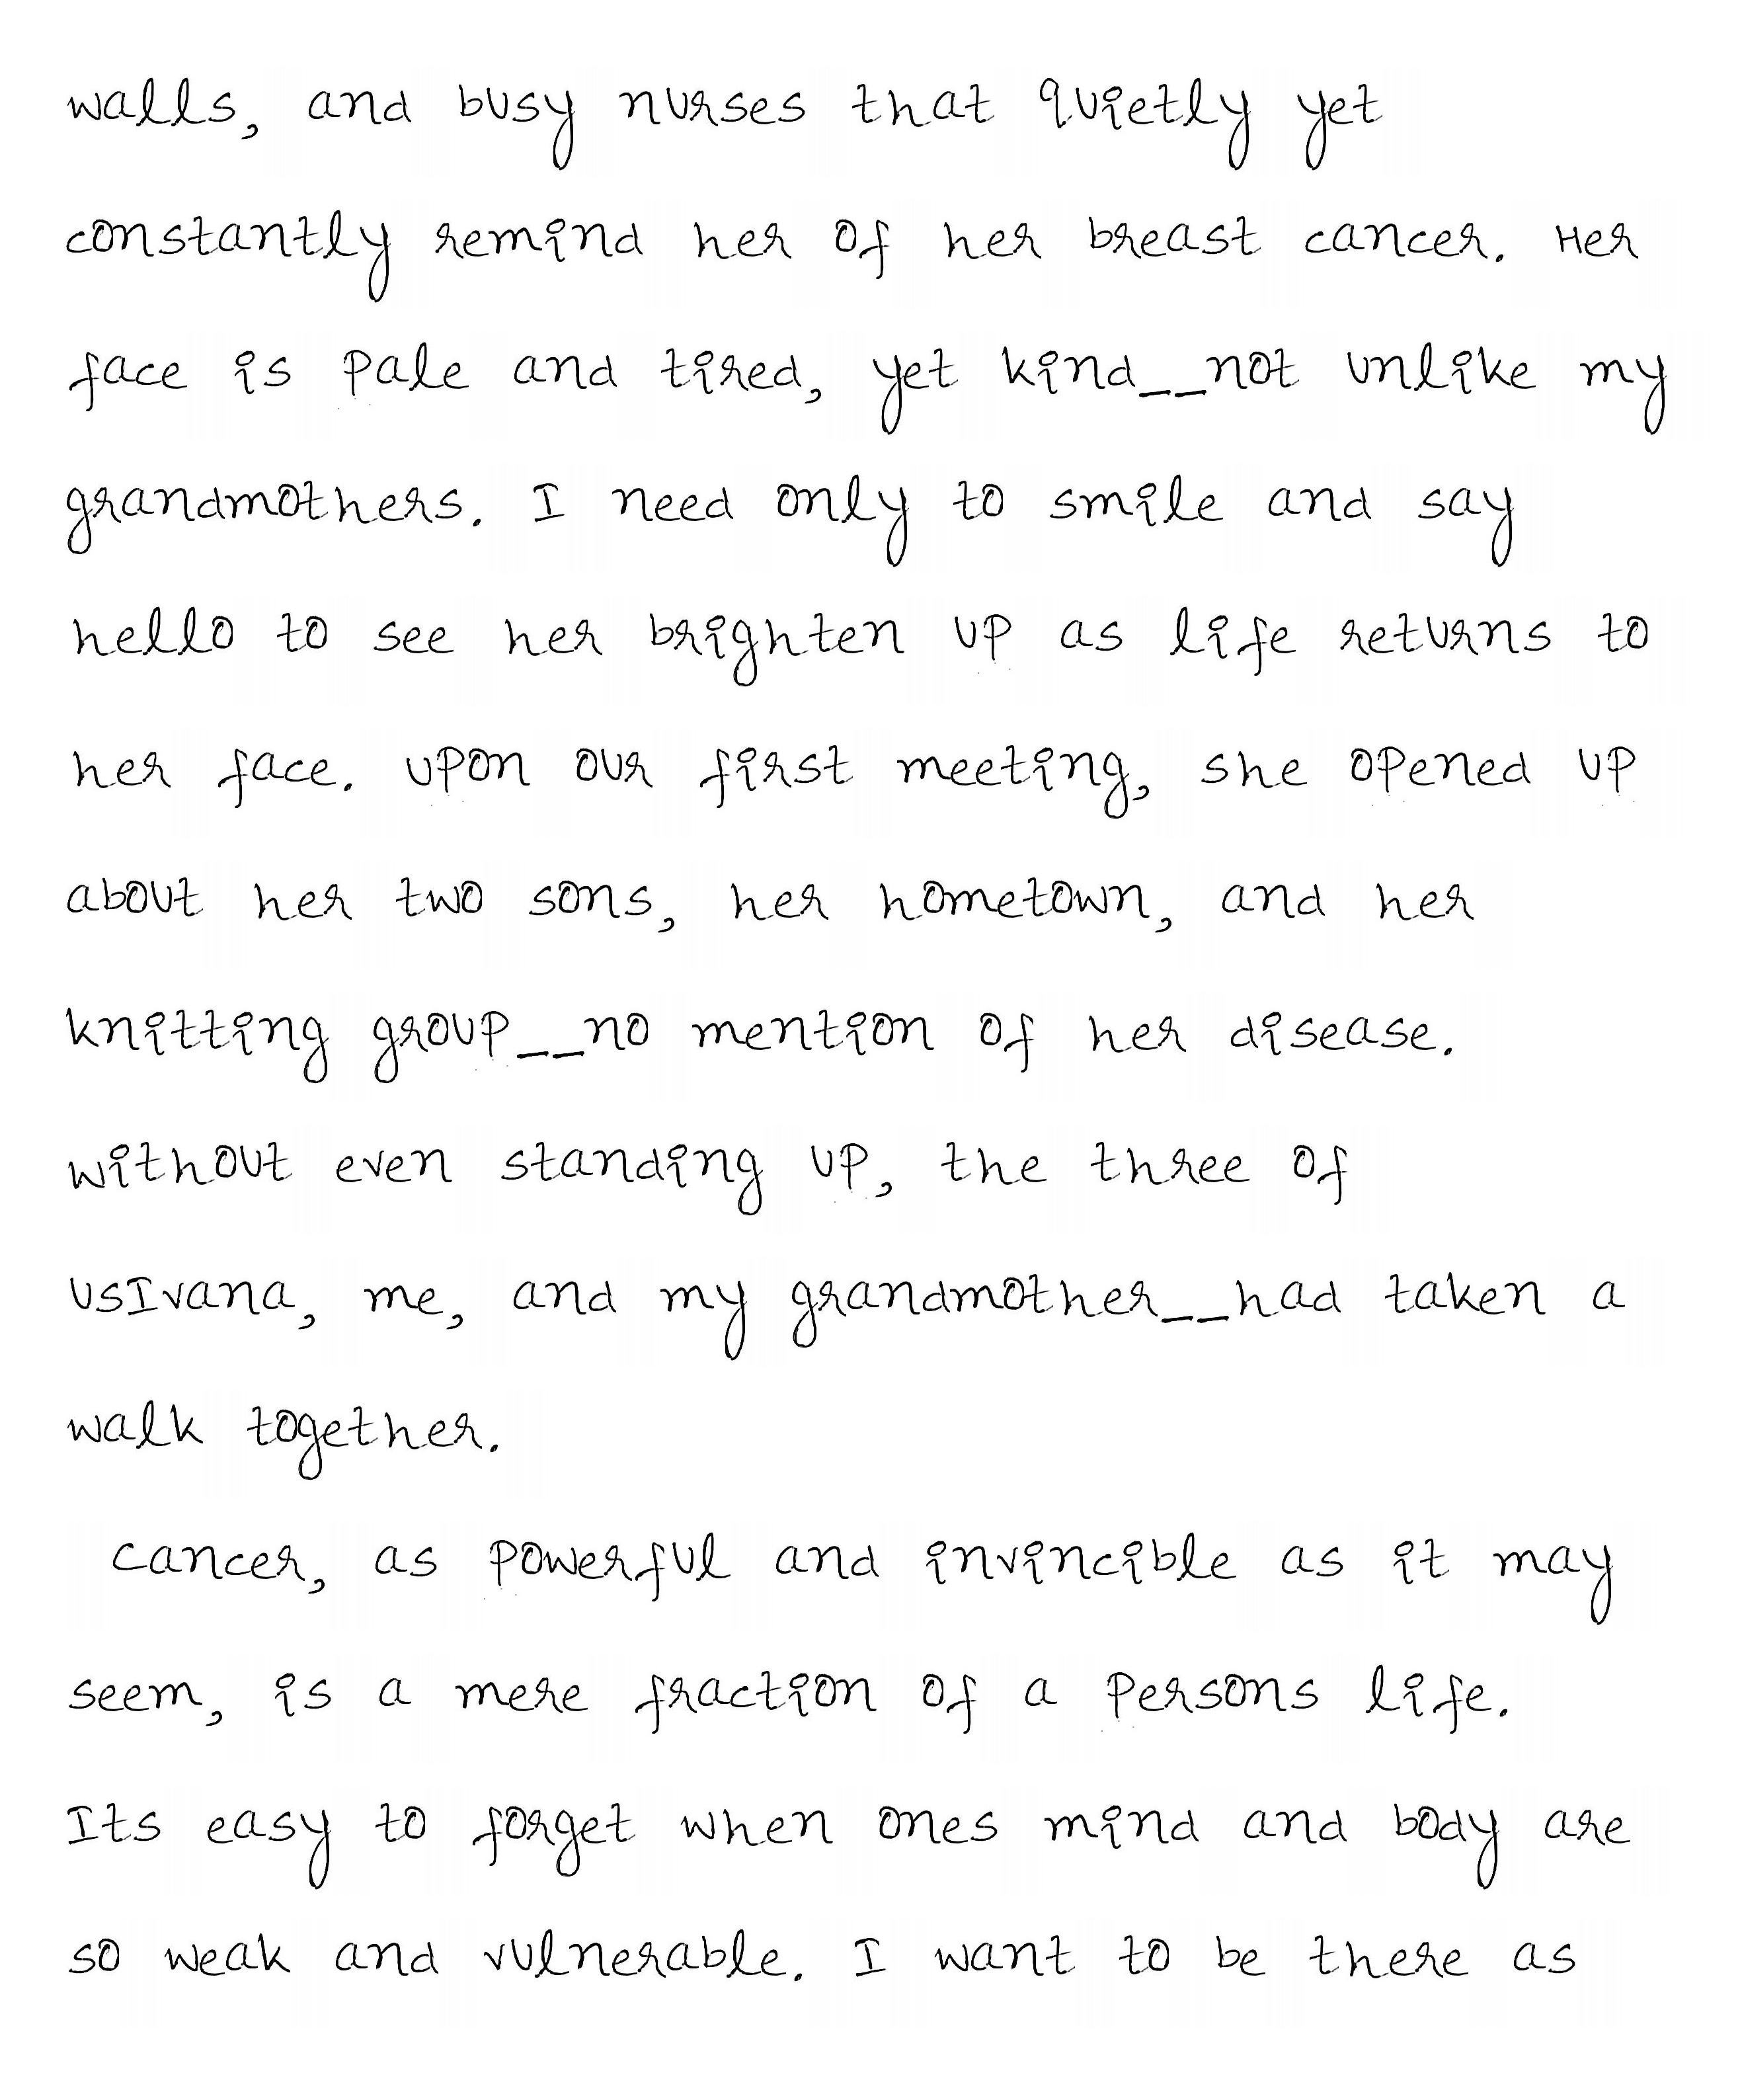 walls, and busy nurses that quietly yet
constantly remind her of her breast cancer. Her
face is pale and tired, yet kind__not unlike my
grandmothers. I need only to smile and say
hello to see her brighten up as life returns to
her face. upon our first meeting, she opened up
about her two sons, her hometown, and her
knitting group__no mention of her disease.
without even standing up, the three of
usIvana, me, and my grandmother__had taken a
walk together.
cancer, as powerful and invincible as it may
seem, is a mere fraction of a persons life.
Its easy to forget when ones mind and body are
so weak and vulnerable. I want to be there as